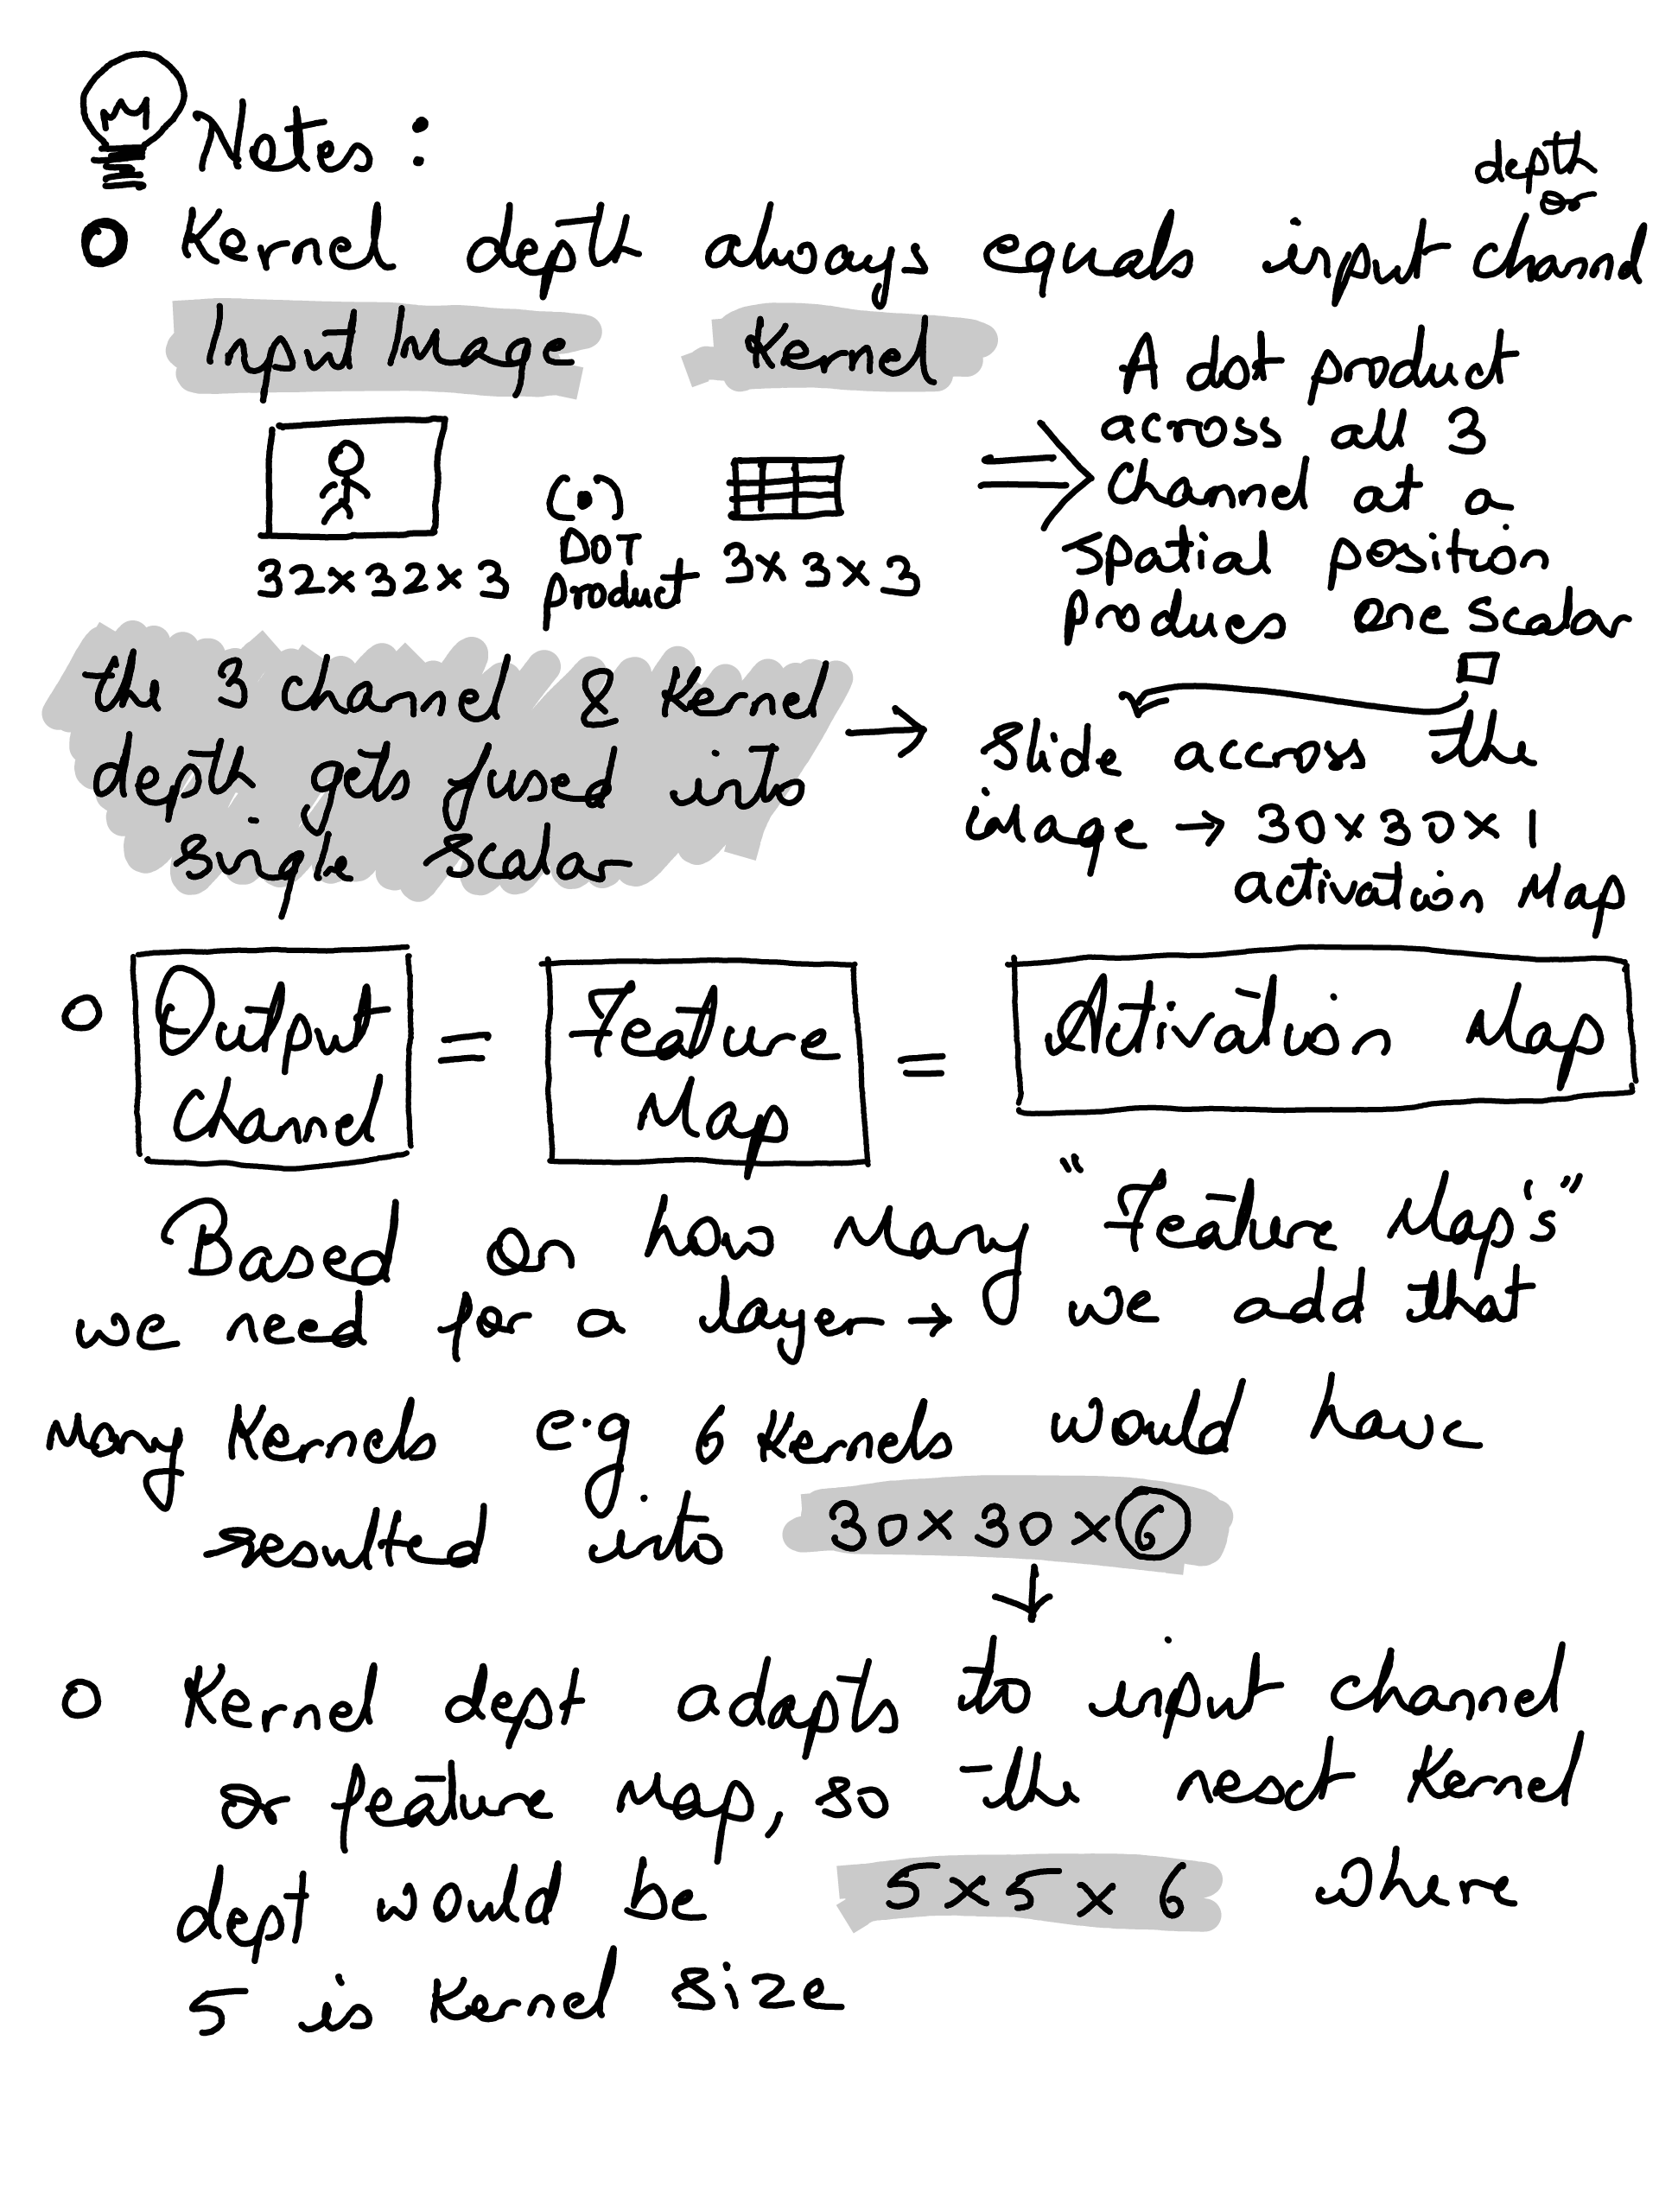 Notes :
depth
or
Kernel depth always equals input channel
Input Image
Kernel
32×32×3
(·)
DOT
product
3×3×3
⇒
A dot product
across all 3
channel at a
spatial position
produces one scalar
the 3 channel & Kernel
depth gets fused into
single scalar
→
Slide accross the
image → 30×30×1
activation Map
Output
Channel
=
Feature
Map
=
Activation Map
Based on how Many "Feature Map's"
we need for a layer → we add that
Many Kernels e.g 6 Kernels would have
resulted into 30×30×6
↓
Kernel dept adapts to input channel
or feature Map, so the next Kernel
dept would be 5×5×6 where
5 is Kernel size